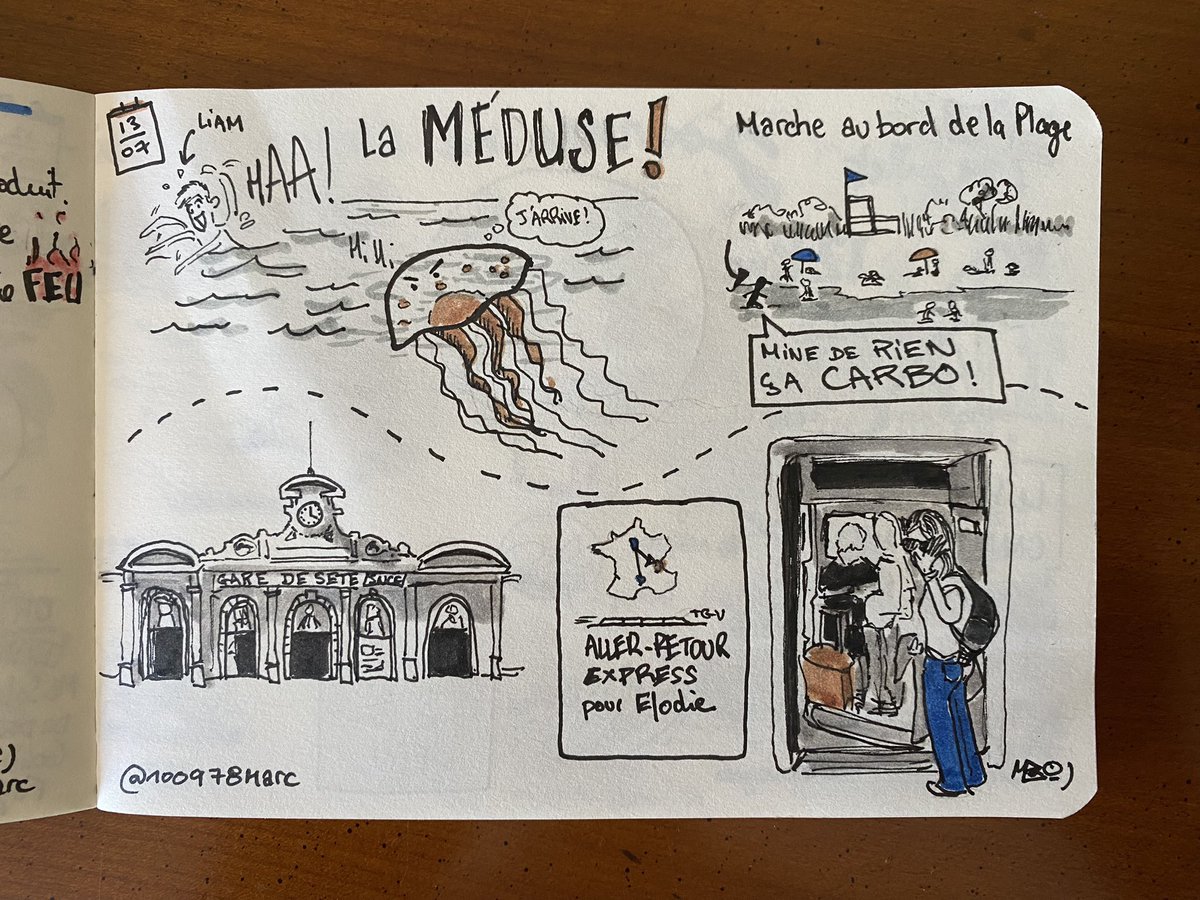 13
07
LiAM
HAA! La MÉDUSE!
J'ARRIVE!
Hi Hi
Marche au bord de la Plage
MiNE DE RiEN
ÇA CARBO!
GARE DE SETE SNCF
TGV
ALLER-RETOUR
EXPRESS
pour Elodie
@100978Marc
oduit.
e
FEU
arc